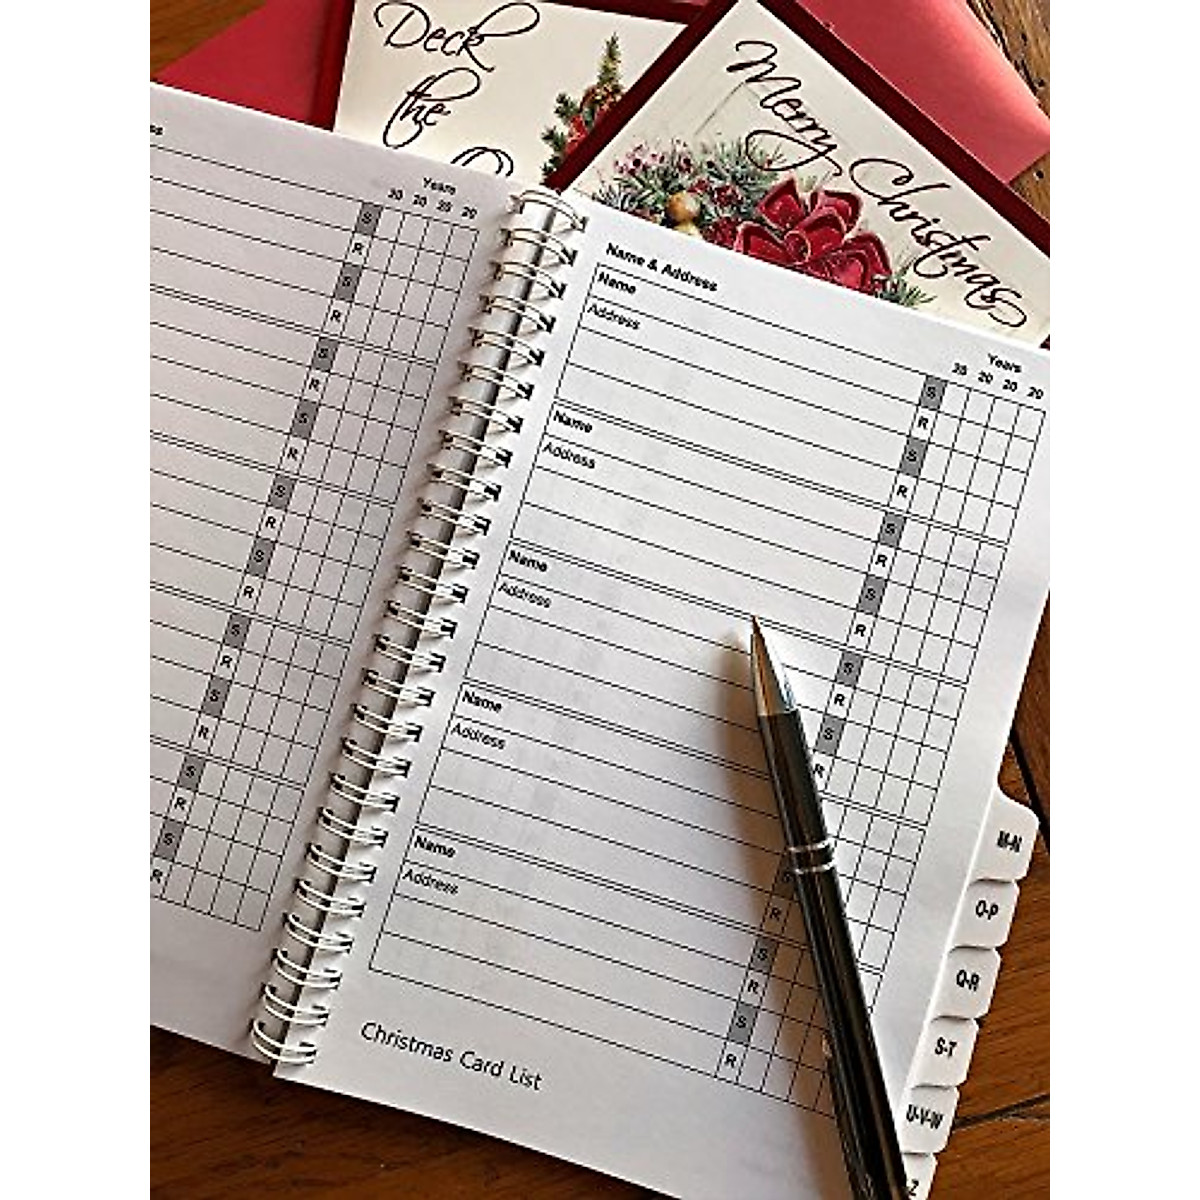 Deck
the
Merry Christmas
ss
Years
20 20 20 20
S
R
S
R
S
R
S
R
S
R
S
R
S
R
S
R
S
R
S
R
Name & Address
Years
20 20 20 20
Name
Address
S
R
S
R
Name
Address
S
R
S
R
Name
Address
S
R
S
R
Name
Address
R
Name
Address
S
R
S
R
Christmas Card List
M-N
O-P
Q-R
S-T
U-V-W
Z